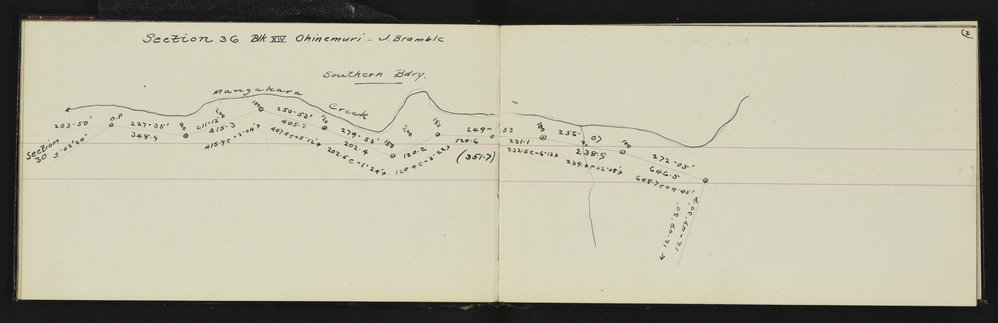 Section 36 Blk XIV Ohinemuri - J. Bramble
2
Southern Bdry.
Mangakara
Creek
203-50'
O.P
227-35'
348.4
211-12'
415.3
415.4c+2.00'
100
250-53'
405.3
407.0c+5.12'
279-53'
202.4
202.5c-1.29'
150
120.2
120.4c-3.22'
150
249-53
120.6
231.1
(351.7)
232.5c-6.12'
100
256-07
238.5
239.0c+2.08'
100
272-05'
646.5
648.7c+4.45'
Section
30
5.03'20"
12-49'30"
12-49'30"